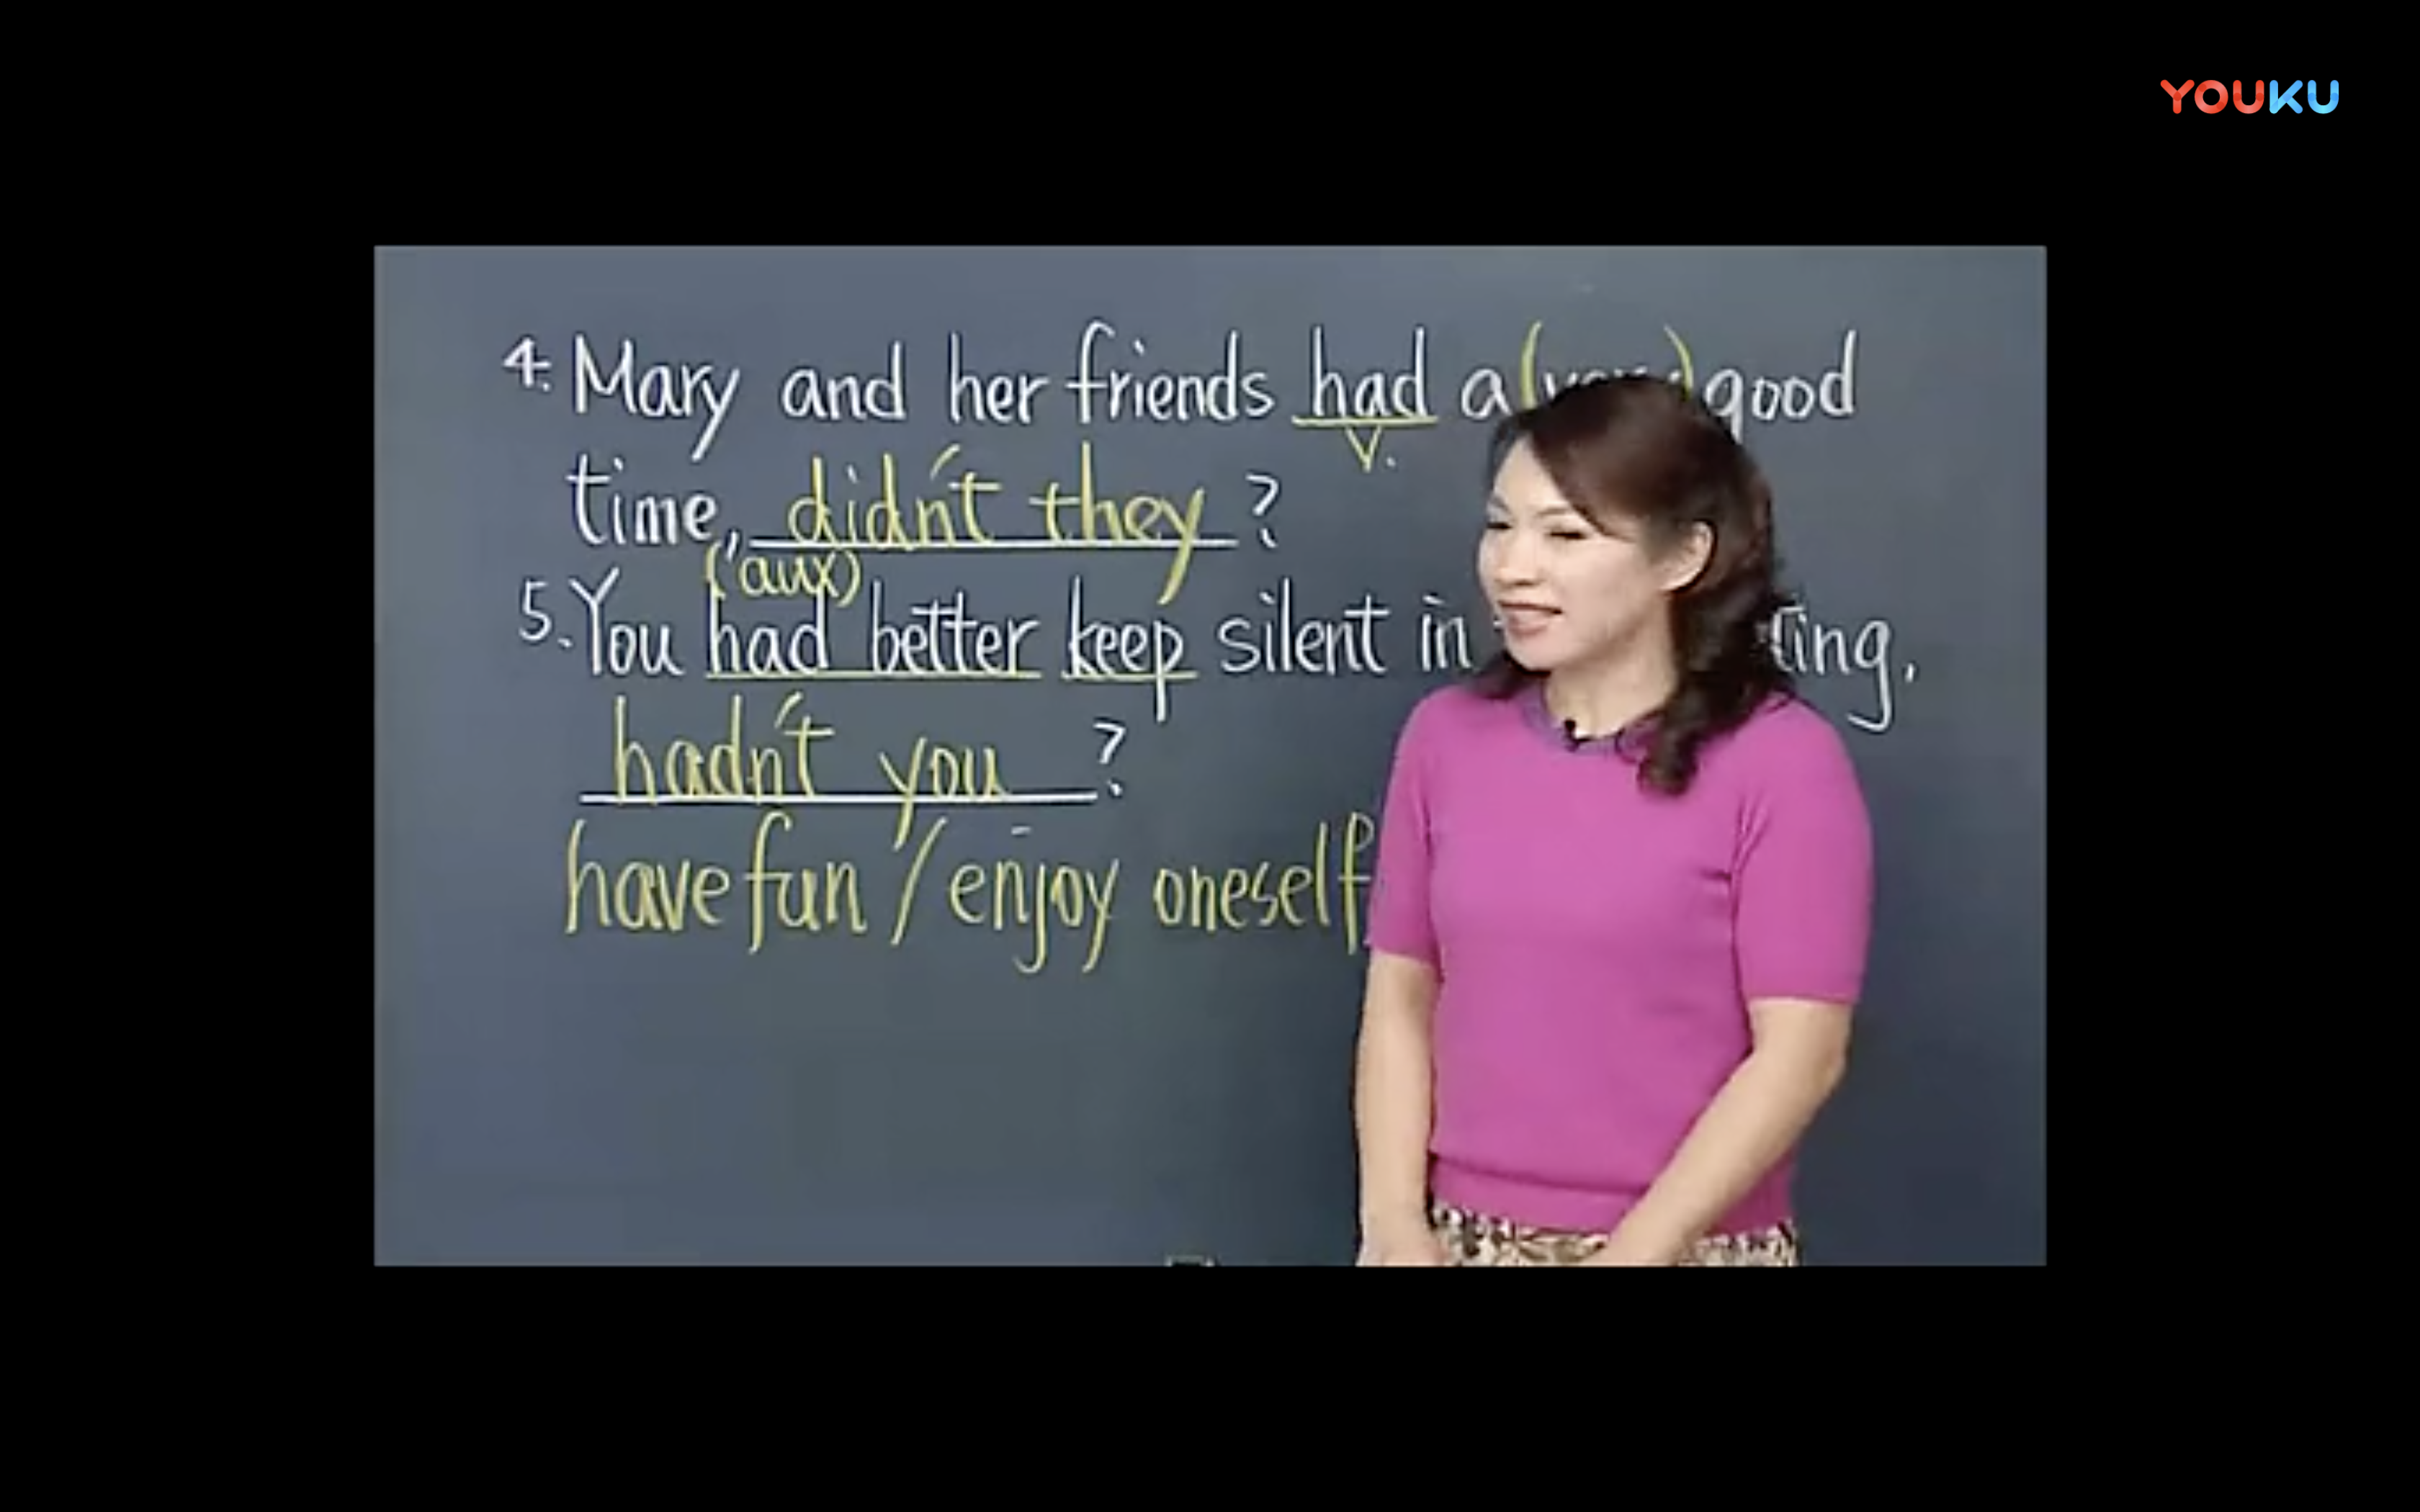 YOUKU
4. Mary and her friends had a ( ) good
v.
time, didn't they ?
(aux)
5. You had better keep silent in
hadn't you ?
have fun / enjoy oneself